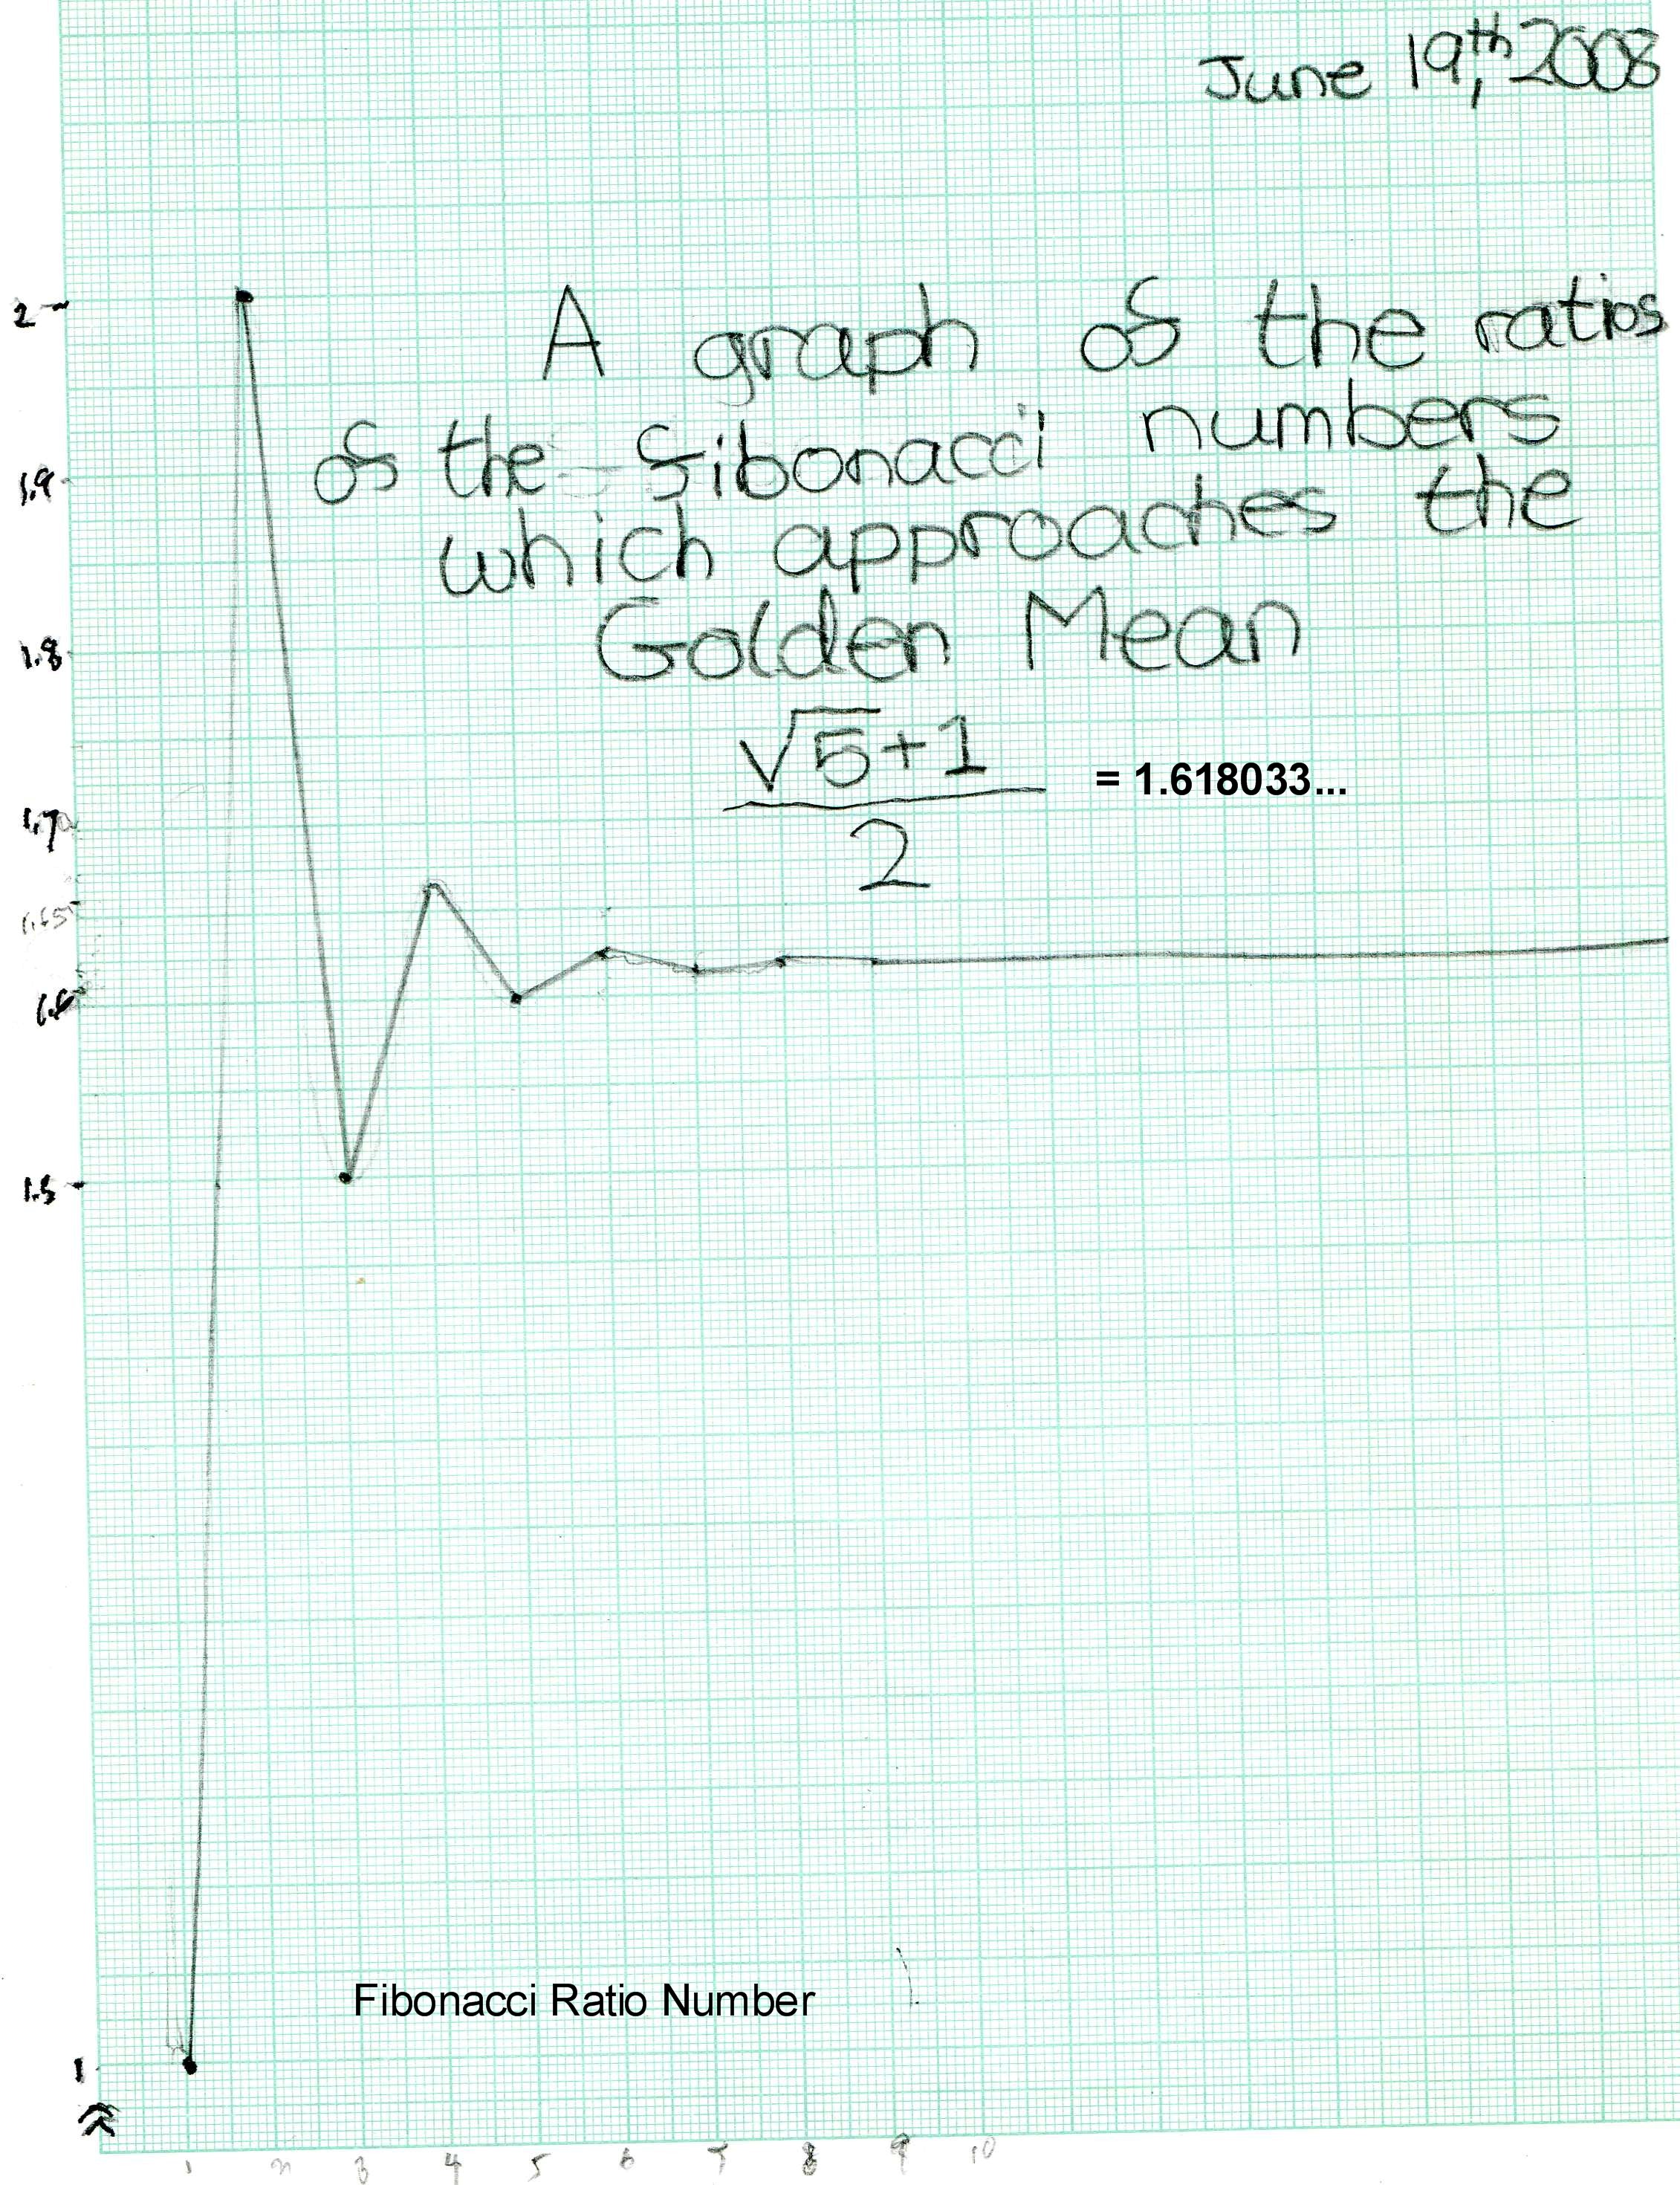 June 19th, 2008
2
A graph of the ratios
of the fibonacci numbers
1.9
which approaches the
1.8
Golden Mean
√5+1
= 1.618033...
2
1.7
1.65
1.6
1.5
Fibonacci Ratio Number
1
1 2 3 4 5 6 7 8 9 10